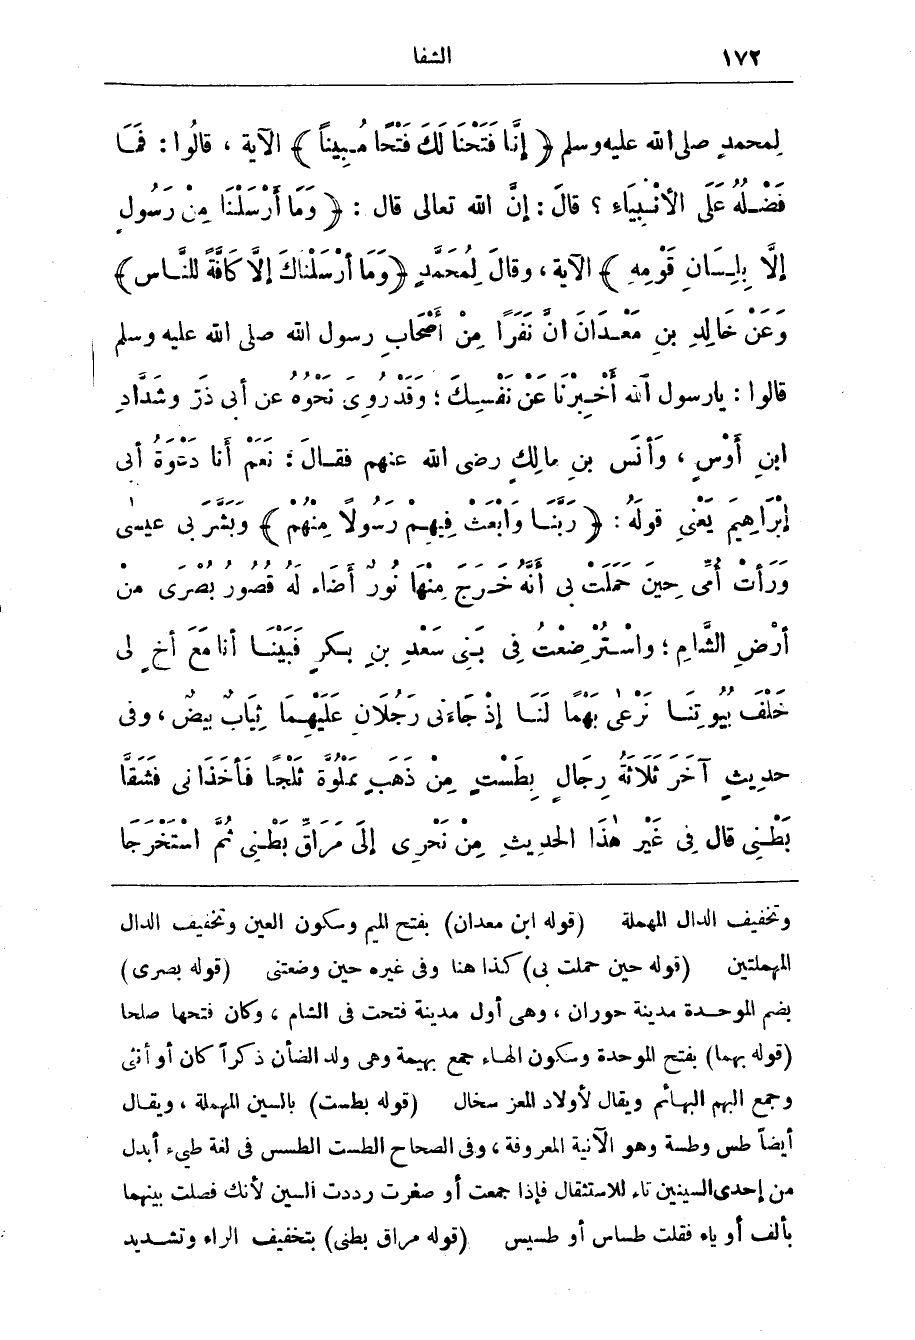 ١٧٢ الشفا
لِمحمدٍ صلى الله عليه وسلم ﴿ إِنَّا فَتَحْنَا لَكَ فَتْحًا مُبِينًا ﴾ الآية ، قالُوا : فَمَا
فَضْلُهُ عَلَى الأنْبِيَاءِ ؟ قالَ : إنَّ الله تعالى قال : ﴿ وَمَا أَرْسَلْنَا مِنْ رَسُولٍ
إلَّا بِلِسَانِ قَوْمِهِ ﴾ الآية ، وقالَ لِمُحَمَّدٍ ﴿ وَمَا أرْسَلْنَاكَ إلَّا كَافَّةً للنَّاسِ ﴾
وَعَنْ خَالِدِ بنِ مَعْدَانَ انَّ نَفَرًا مِنْ أَصْحَابِ رسول الله صلى الله عليه وسلم
قالوا : يارسول الله أَخْبِرْنَا عَنْ نَفْسِكَ ؛ وَقَدْ رُوِىَ نَحْوُهُ عن أبى ذَرّ وشَدَّادِ
ابنِ أَوْسٍ ، وَأنَسِ بنِ مالِكٍ رضى الله عنهم فقالَ : نَعَمْ أَنا دَعْوَةُ أبى
إبْرَاهِيمَ يَعْنِى قولَهُ : ﴿ رَبَّنَا وَابْعَثْ فِيهِمْ رَسُولًا مِنْهُمْ ﴾ وَبَشَّرَ بى عيسٰى
وَرَأتْ أُمِّى حِينَ حَمَلَتْ بى أَنَّهُ خَرَجَ مِنْهَا نُورٌ أَضَاءَ لَهُ قُصُورُ بُصْرَى منْ
أرْضِ الشَّامِ ؛ واسْتُرْضِعْتُ فِى بَنِى سَعْدِ بنِ بكرٍ فَبَيْنَا أنا مَعَ أخٍ لى
خَلْفَ بُيُوتِنَا نَرْعٰى بَهْمًا لَنَا إذْ جَاءَنى رَجُلَانِ عَلَيْهِمَا ثِيَابٌ بيضٌ ، وفى
حديثٍ آخَرَ ثَلَاثَةُ رِجَالٍ بِطَسْتٍ مِنْ ذَهَبٍ مَمْلُوَّةٍ ثَلْجًا فَأخَذَانى فَشَقَّا
بَطْنِى قال فِى غَيْرِ هٰذَا الحديثِ مِنْ نَحْرِى إلَى مَرَاقِّ بَطْنِى ثُمَّ اسْتَخْرَجَا
وتخفيف الدال المهملة (قوله ابن معدان) بفتح الميم وسكون العين وتخفيف الدال
المهملتين (قوله حين حملت بى) كذا هنا وفى غيره حين وضعتنى (قوله بصرى)
بضم الموحدة مدينة حوران ، وهى أول مدينة فتحت فى الشام ، وكان فتحها صلحا
(قوله بهما) بفتح الموحدة وسكون الهاء جمع بهيمة وهى ولد الضأن ذكراً كان أو أنثى
وجمع البهم البهائم ويقال لأولاد المعز سخال (قوله بطست) بالسين المهملة ، ويقال
أيضاً طس وطسة وهو الآنية المعروفة ، وفى الصحاح الطست الطسس فى لغة طيء أبدل
من إحدى السينين تاء للاستثقال فإذا جمعت أو صغرت رددت السين لأنك فصلت بينهما
بألف أو ياء فقلت طساس أو طسيس (قوله مراق بطنى) بتخفيف الراء وتشديد